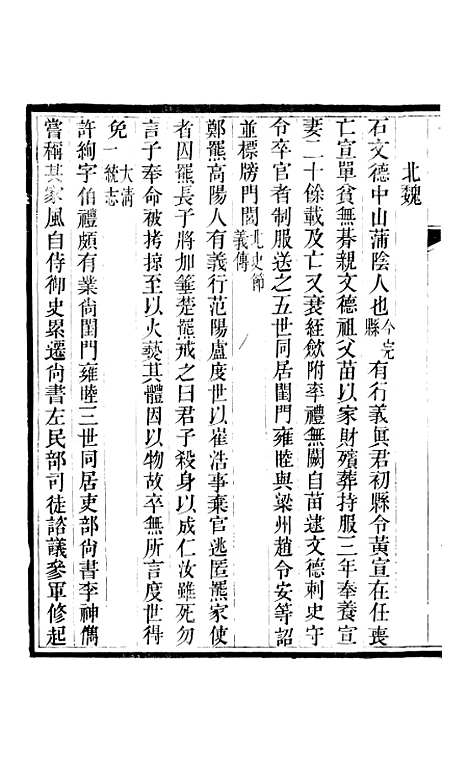 北魏
石文德中山蒲陰人也今完縣有行義真君初縣令黃宣在任喪
亡宣單貧無朞親文德祖父苗以家財殯葬持服三年奉養宣
妻二十餘載及亡又衰絰斂附率禮無闕自苗逮文德刺史守
令卒官者制服送之五世同居閨門雍睦與梁州趙令安等詔
並標牓門閭北史節義傳
鄭羆高陽人有義行范陽盧度世以崔浩事棄官逃匿羆家使
者囚羆長子將加箠楚羆戒之曰君子殺身以成仁汝雖死勿
言子奉命被拷掠至以火爇其體因以物故卒無所言度世得
免大清一統志
許絢字伯禮頗有業尚閨門雍睦三世同居吏部尚書李神儁
嘗稱其家風自侍御史累遷尚書左民部司徒諮議參軍修起